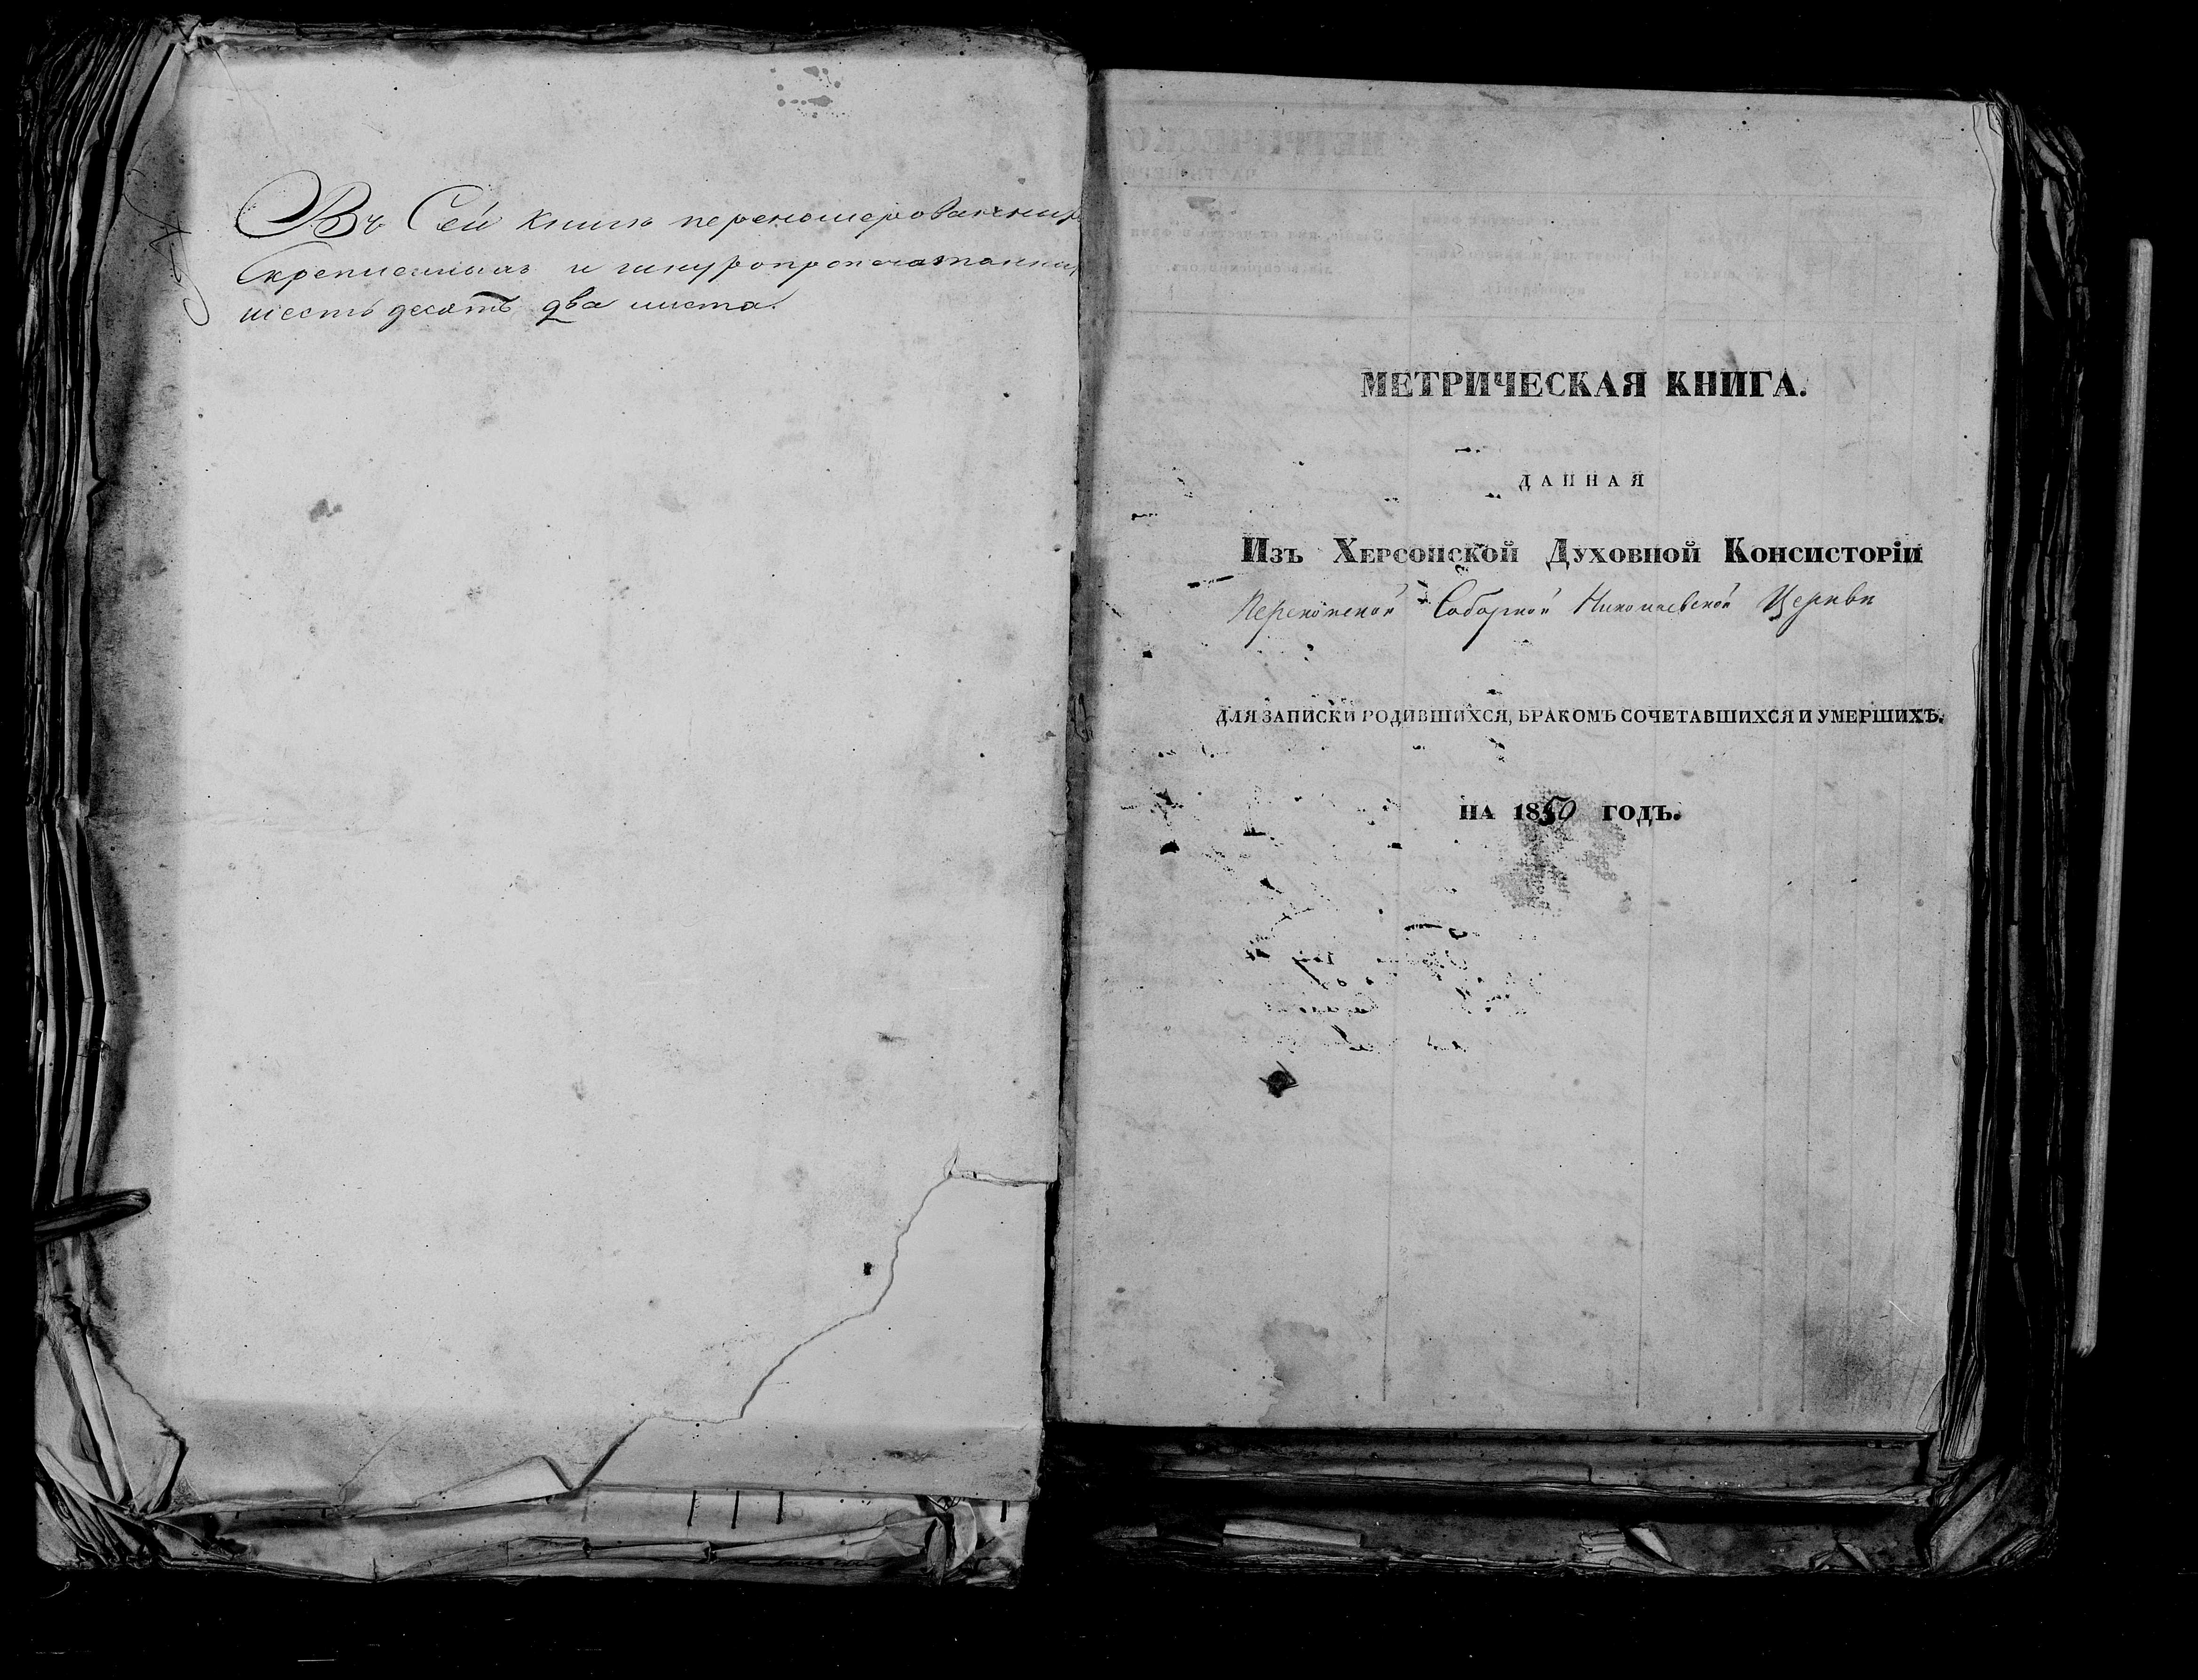 Въ Сей книгѣ перенумерованныхъ
Скрепленныхъ и шнуропропечатанныхъ
шестьдесятъ два листа.
МЕТРИЧЕСКАЯ КНИГА.
ДАННАЯ
Изъ Херсонской Духовной Консисторіи
Перекопской Соборной Николаевской Церкви
ДЛЯ ЗАПИСКИ РОДИВШИХСЯ, БРАКОМЪ СОЧЕТАВШИХСЯ И УМЕРШИХЪ.
НА 1850 ГОДЪ.